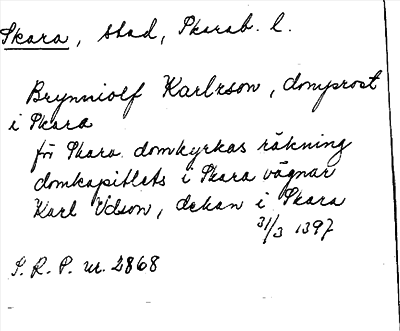 Skara, stad, Skarab. l.
Brynniolf Karlsson, domprost
i Skara
för Skara domkyrkas räkning
domkapitlets i Skara vägnar
Karl Udson, dekan i Skara
31/3 1397
S. R. P. nr. 2868